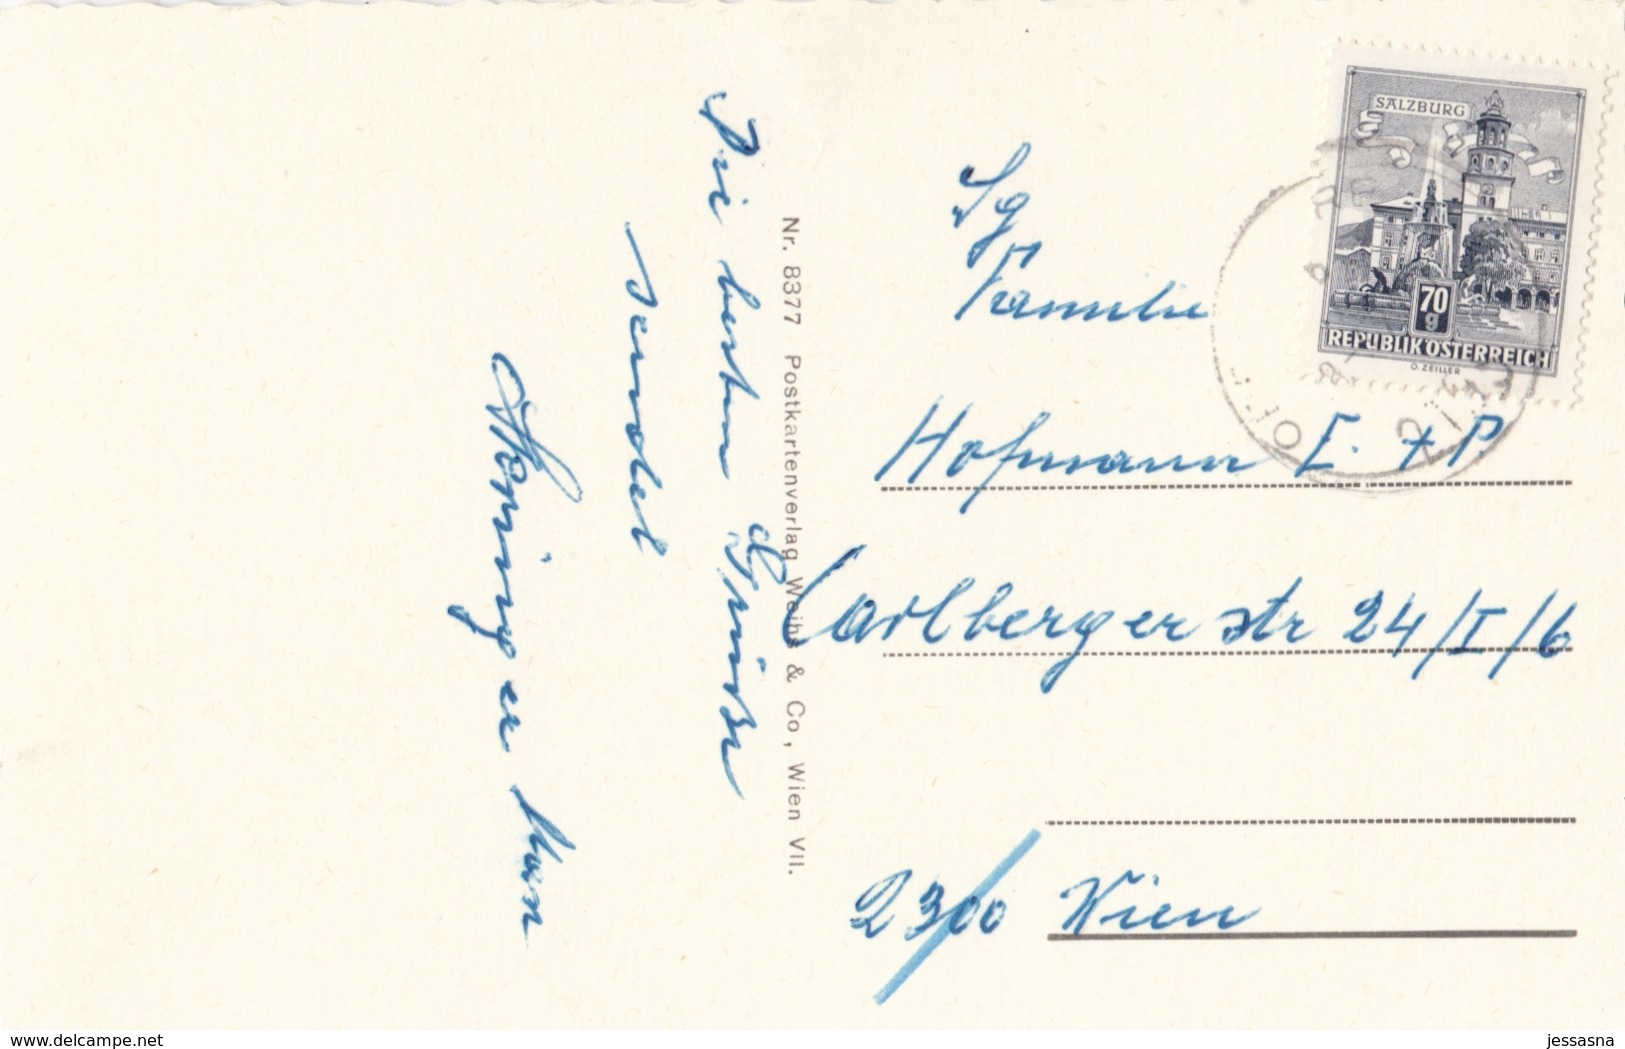 Die besten Grüße
sendet
Nr. 8377 Postkartenverlag Weihs & Co, Wien VII.
SALZBURG
70
g
REPUBLIK ÖSTERREICH
O. ZEILLER
Sg
Familie
Hofmann E. + P.
Carlbergerstr 24/I/6
2300 Wien
www.delcampe.net
jessasna